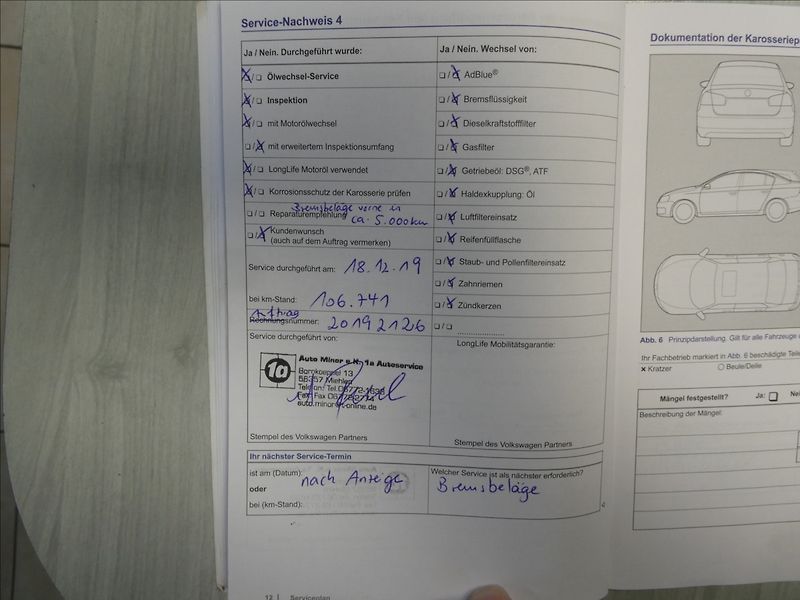 Service-Nachweis 4
Ja / Nein. Durchgeführt wurde:
Ja / Nein. Wechsel von:
Ölwechsel-Service
AdBlue®
Inspektion
Bremsflüssigkeit
mit Motorölwechsel
Dieselkraftstofffilter
mit erweitertem Inspektionsumfang
Gasfilter
LongLife Motoröl verwendet
Getriebeöl: DSG®, ATF
Korrosionsschutz der Karosserie prüfen
Haldexkupplung: Öl
Bremsbeläge vorne in
Reparaturempfehlung ca. 5.000km
Luftfiltereinsatz
Kundenwunsch
(auch auf dem Auftrag vermerken)
Reifenfüllflasche
Service durchgeführt am: 18.12.19
Staub- und Pollenfiltereinsatz
Zahnriemen
bei km-Stand: 106.741
Zündkerzen
Auftrag
Rechnungsnummer: 20192126
Service durchgeführt von:
LongLife Mobilitätsgarantie:
1a
Auto Minor e.K. 1a Autoservice
56357 Miehlen
auto.minor@t-online.de
Stempel des Volkswagen Partners
Stempel des Volkswagen Partners
Ihr nächster Service-Termin
ist am (Datum): nach Anzeige
oder
bei (km-Stand):
Welcher Service ist als nächster erforderlich?
Bremsbeläge
12 | Serviceplan
Dokumentation der Karosseriep
Abb. 6 Prinzipdarstellung. Gilt für alle Fahrzeuge
Ihr Fachbetrieb markiert in Abb. 6 beschädigte Teile
x Kratzer
Beule/Delle
Mängel festgestellt? Ja: Nei
Beschreibung der Mängel: